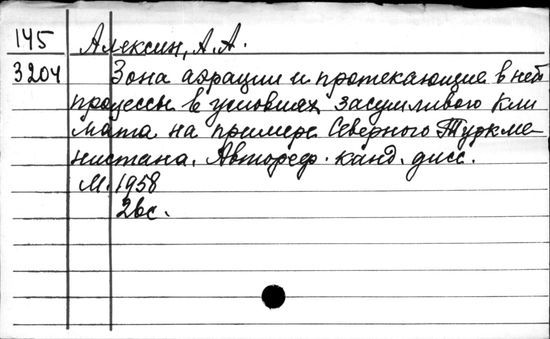 145 Алексин, А.А.
3204 Зона аэрации и протекающие в ней
процессы в условиях засушливого кли
мата на примере Северного Туркме-
нистана. Автореф. канд. дисс.
М. 1958
26с.